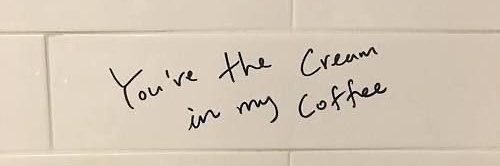 You're the Cream
in my Coffee